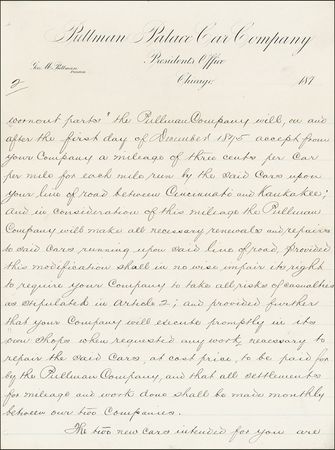 Pullman Palace Car Company
Presidents Office
Geo. M. Pullman
President
Chicago 187
2
wornout parts" the Pullman Company will, on and
after the first day of December 1875 accept from
your Company a mileage of three cents per car
per mile for each mile run by the said Cars upon
your line of road between Cincinnati and Kankakee;
and in consideration of this mileage the Pullman
Company will make all necessary renewals and repairs
to said Cars running upon said line of road, provided
this modification shall in no wise impair its right
to require your Company to take all risks of casualties
as stipulated in Article 2; and provided further
that your Company will execute promptly in its
own Shops when requested any work necessary to
repair the said Cars, at cost price, to be paid for
by the Pullman Company, and that all settlements
for mileage and work done shall be made monthly
between our two Companies.
The two new cars intended for you are